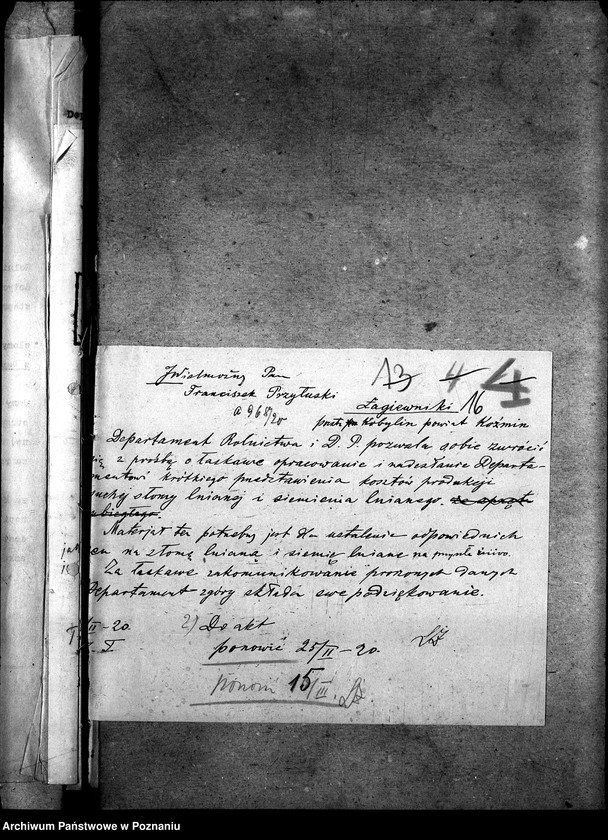 JWielmożny Pan
Franciszek Przyłuski
a 968/20
13 4 4
Łagiewniki 16
Kobylin powiat Koźmin
Departament Rolnictwa i D. P. pozwala sobie zwrócić
się z prośbą o łaskawe opracowanie i nadesłanie Departa-
mentowi krótkiego przedstawienia kosztów produkcji
suchej słomy lnianej i siemienia lnianego.
ubiegłego.
Materjał ten potrzebny jest dla ustalenia odpowiednich
cen na słomę lnianą i siemię lniane na przyszłe żniwo.
Za łaskawe zakomunikowanie proszonych danych
Departament zgóry składa swe podziękowanie.
II-20.
2) Do akt
ponowić 25/II-20.
ponow 15/III.
Archiwum Państwowe w Poznaniu